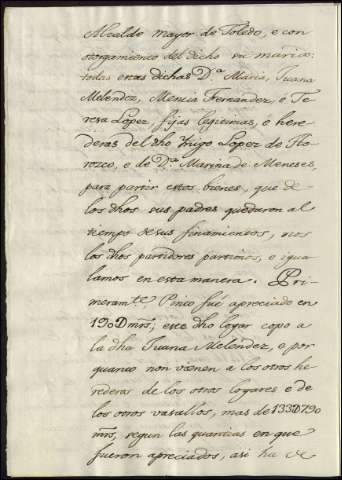 Alcalde mayor de Toledo, e con
otorgamiento del dicho su marido:
todas estas dichas D.ª Maria, Juana
Melendez, Mencia Fernandez, e Te-
resa Lopez, fijas legitimas, e here-
deras del dho Yñigo Lopez de Ho-
rozco, e de D.ª Marina de Meneses,
para partir estos bienes, que de
los dhos sus padres quedaron al
tiempo de sus finamientos, nos
los dhos partidores partimos, e igua-
lamos en esta manera. Pri-
meram.te Pinto fué apreciado en
190D mrs, este dho logar copo a
la dha Juana Melendez, e por
quanto non vienen a los otros he-
rederas de los otros logares e de
los otros vasallos, mas de 133D790
mrs, segun las quantias en que
fueron apreciados, asi ha de